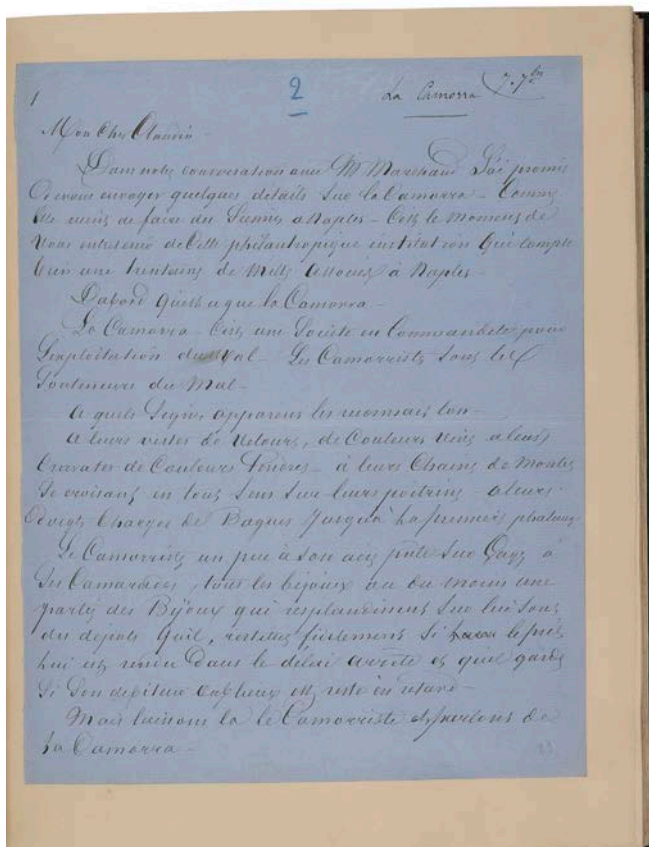 1 2 La Camorra 7. 7bre
Mon Cher Claudin
Dans notre conversation avec Mr Marchand J'ai promis
De vous envoyer quelques details Sur la Camorra – Comme
Elle vient de faire des Siennes a Naples – C'est le moment de
Vous entretenir de Cette philantropique institution Qui compte
bien une trentaine de Mille Associés à Naples –
Dabord Quest ce que la Camorra –
La Camorra – C'est une Société en Commandite pour
L'exploitation du Mal – Les Camorristes Sont les
Souteneurs du Mal –
A quels Signes apparens les reconnait ton –
A leurs vestes de Velours, de Couleurs vives a leurs
Cravates de Couleurs Tendres – à leurs Chaines de Montres
Se croisant en tous Sens Sur leurs poitrines – a leurs
Doights Charges de Bagues Jusqu'à La premiere phalange
Le Camorriste un peu à Son aise prete Sur Gages à
Ses Camarades, tous les bijoux ou du moins une
partie des Bijoux qui resplendissent Sur lui Sont
des depots Quil, restitue fidelement Si le pret
lui est rendu Dans le délai arrete et quil garde
Si Son debiteur est reste en retard –
Mais laissons la le Camorriste et parlons de
La Camorra –